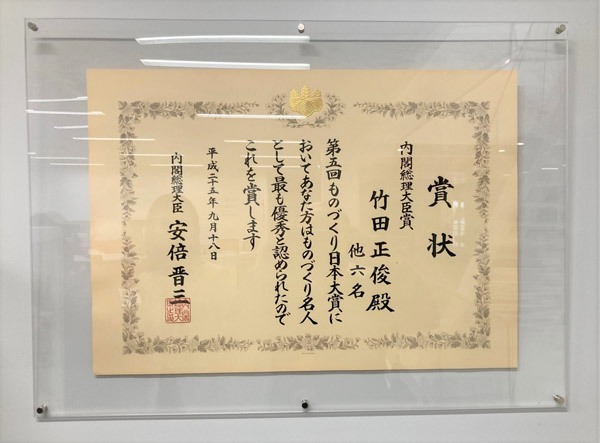 賞状
内閣総理大臣賞
竹田正俊殿
他六名
第五回ものづくり日本大賞に
おいてあなた方はものづくり名人
として最も優秀と認められたので
これを賞します
平成二十五年九月十八日
内閣総理大臣 安倍晋三